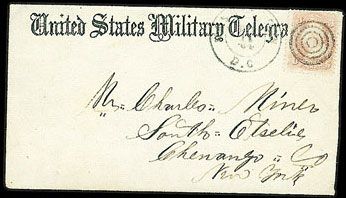 United States Military Telegra
D.C
Mr. Charles Miner
South Otselic
Chenango Co
New York